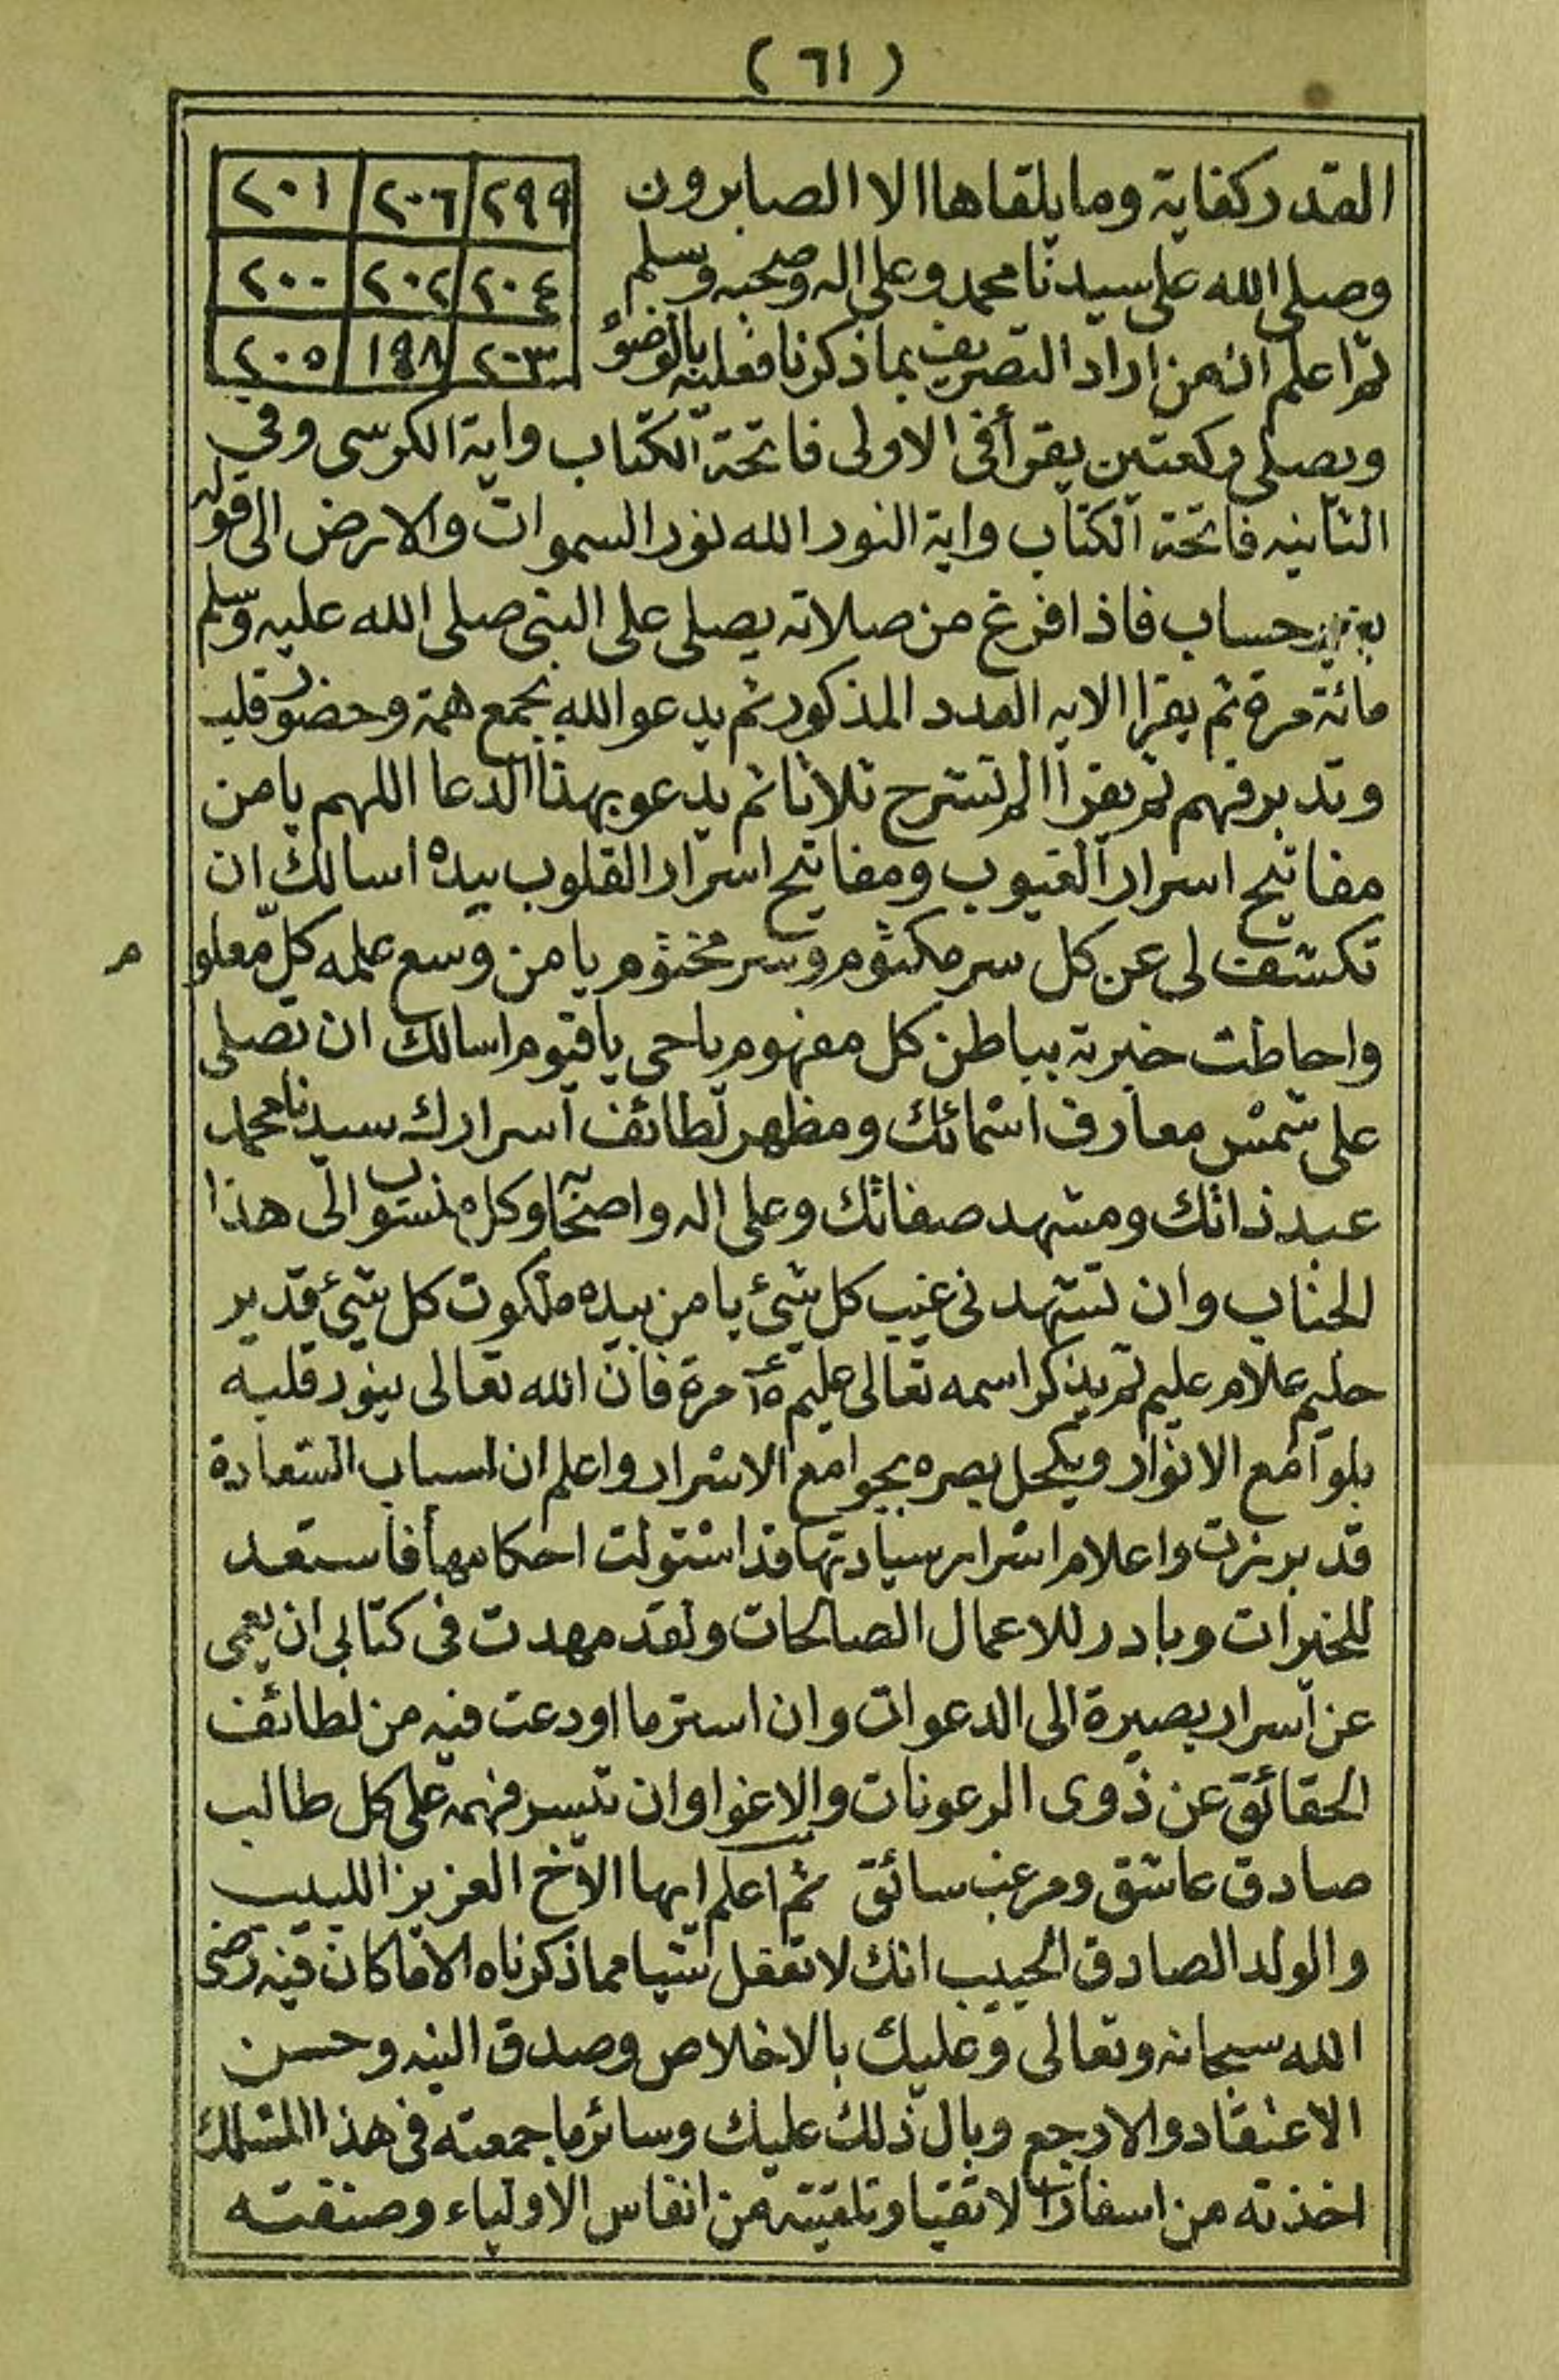 ( ٦١ )
٢٠١ ٢٠٦ ٢٩٩
٢٠٠ ٢٠٢ ٢٠٤
٢٠٥ ١٩٨ ٢٠٣
القدر كفاية وما يلقاها الا الصابرون
وصلى الله على سيدنا محمد وعلى اله وصحبه وسلم
ثم اعلم انه من اراد التصريف بما ذكرنا فعليه بالوضوٴ
ويصلى ركعتين يقرأ فى الاولى فاتحة الكتاب واية الكرسى وفى
الثانيه فاتحة الكتاب واية النور الله نور السموات والارض الى قوله
بغير حساب فاذا فرغ من صلاته يصلى على النبى صلى الله عليه وسلم
مائة مرة ثم يقرا الايه العدد المذكور ثم يدعو الله بجمع همة وحضور قلب
وتدبر فهم ثم يقرأ الم نشرح ثلاثا ثم يدعو بهذا الدعا اللهم يا من
مفاتيح اسرار الغيوب ومفاتيح اسرار القلوب بيده اسالك ان
تكشف لى عن كل سر مكتوم وسر مختوم يا من وسع علمه كل معلو م
واحاطت خبرته بباطن كل مفهوم يا حى يا قيوم اسالك ان تصلى
على شمس معارف اسمائك ومظهر لطائف اسرارك سيدنا محمد
عبد ذاتك ومشهد صفاتك وعلى اله واصحا وكل منسوب الى هذا
الجناب وان تشهدنى غيب كل شئ يا من بيده ملكوت كل شئ قدير
حليم علام عليم ثم يذكر اسمه تعالى عليم مرة فان الله تعالى ينور قلبه
بلوامع الانوار ويكحل بصره بجوامع الاسرار واعلم ان اسباب السعادة
قد برزت واعلام اسرار سيادتها قد استولت احكامها فاستعد
للخيرات وبادر للاعمال الصالحات ولقد مهدت فى كتابى ان يعمى
عن اسرار بصيرة الى الدعوات وان استر ما اودعت فيه من لطائف
الحقائق عن ذوى الرعونات والاغوا وان تيسر فهمه على كل طالب
صادق عاشق ومرغب سائق ثم اعلم ايها الاخ العزيز اللبيب
والولد الصادق الحبيب انك لا تفعل شيا مما ذكرناه الا ما كان فيه رضى
الله سبحانه وتعالى وعليك بالاخلاص وصدق النيه وحسن
الاعتقاد والا رجع وبال ذلك عليك وسائر ما جمعته فى هذا المسلك
اخذته من اسفار الاتقيا وتلقيته من انفاس الاولياء وصنفته